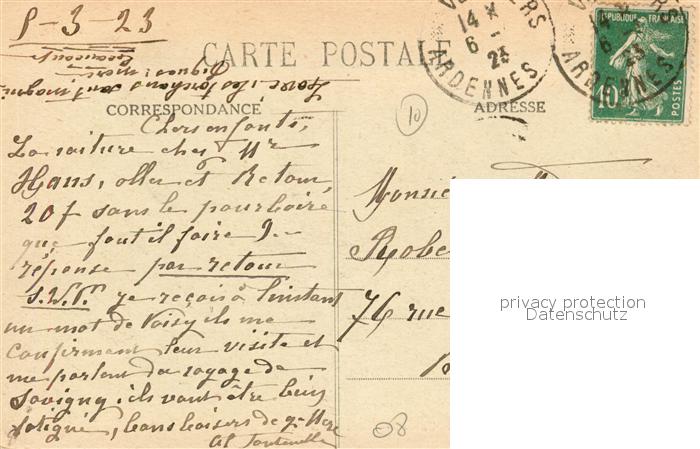 5-3-23
CARTE POSTALE
CORRESPONDANCE
ADRESSE
RÉPUBLIQUE FRANÇAISE
10
POSTES
14
6
23
ARDENNES
ARDENNES
10
Chers enfants,
La voiture chez Mr
Hans, aller et Retour,
20f sans le pourboire
que faut il faire ?
réponse par retour
S.V.P. je reçois à l'instant
un mot de Voisy ils me
confirment leur visite et
me parlent du voyage de
Savigny ils vont être bien
fatigué, bons baisers de g-Mère
Monsie
Robe
76 rue
08
privacy protection
Datenschutz